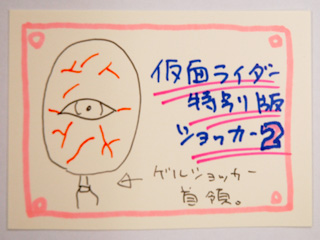 仮面ライダー
特別版
ショッカー2
ゲルショッカー
首領。